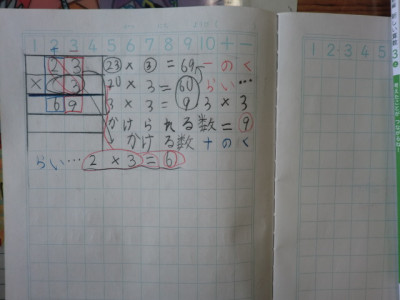 1 2 3 4 5 6 7 8 9 10 + −
2 3
× 0 3
6 9
23 × 3 = 69 一のく
20 × 3 = 60 らい…
3 × 3 = 9 3 × 3
かけられる数 = 9
かける数 十のく
らい… 2 × 3 = 6
1 2 3 4 5